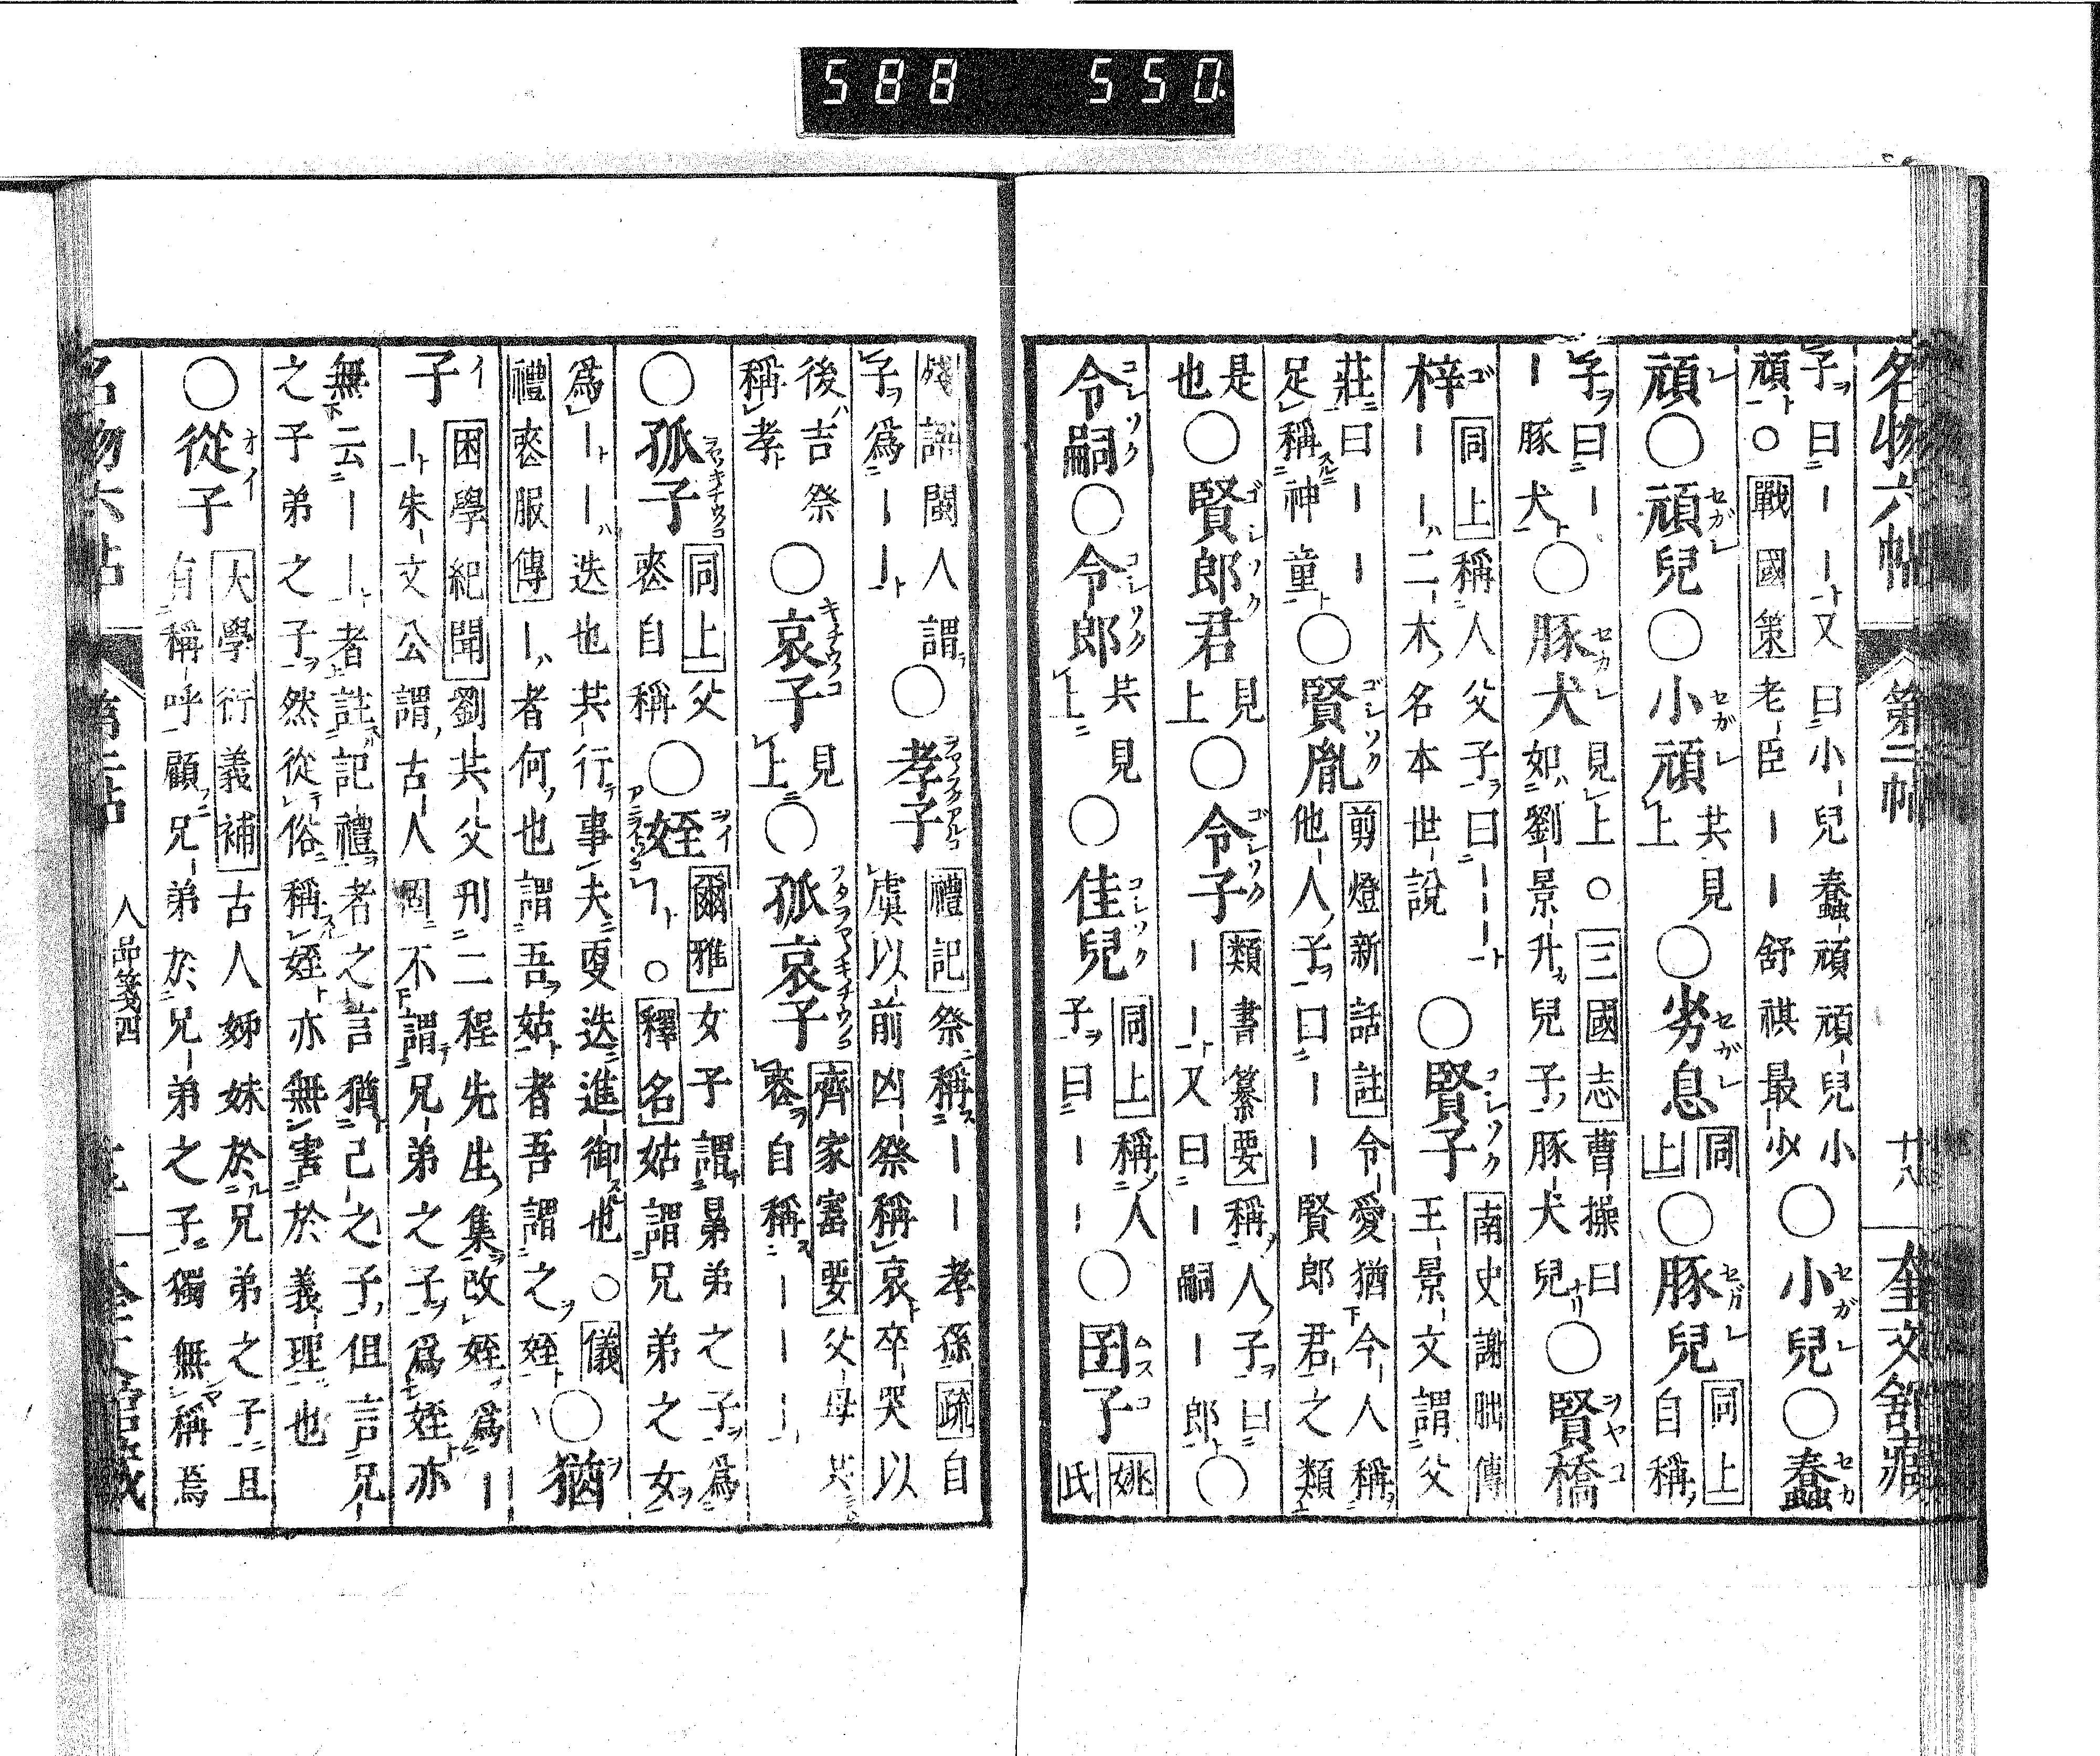 588 550
名物六帖 第二帖 十八 奎文舘藏
子曰｜｜又曰小兒蠢頑頑兒小
頑○戰國策老臣｜｜舒祺最少○小兒○蠢
頑○頑兒○小頑共見上○劣息同上○豚兒同上自稱
子曰｜｜豚犬○豚犬見上○三國志曹操曰如劉景升兒子豚犬兒○賢橋
梓同上稱人父子曰｜｜｜｜二木名本世說○賢子南史謝朏傳王景文謂父
莊曰｜｜足稱神童○賢胤剪燈新話註令愛猶今人稱他人子曰｜｜賢郎君之類
是也○賢郎君見上○令子類書纂要稱人子曰｜｜又曰｜嗣｜郎○
令嗣○令郎共見上○佳兒同上稱人子曰｜｜○囝子姚氏
殘語閩人謂子爲｜｜○孝子禮記祭稱｜｜孝孫疏自虞以前凶祭稱哀卒哭以
後吉祭稱孝○哀子見上○孤哀子齊家寳要父母共喪自稱｜｜｜
○孤子同上父喪自稱○姪爾雅女子謂晜弟之子爲｜○釋名姑謂兄弟之女
爲｜｜迭也共行事夫更迭進御也○儀禮喪服傳｜者何也謂吾姑者吾謂之姪○猶
子困學紀聞劉共父刋二程先生集改姪爲｜｜朱文公謂古人固不謂兄弟之子爲姪亦
無云｜｜者註記禮者之言猶己之子但言兄之子弟之子然從俗稱姪亦無害於義理也
○從子大學衍義補古人姊妹於兄弟之子且有稱呼顧兄弟於兄弟之子獨無稱焉
名物六帖 第二帖 人品箋四